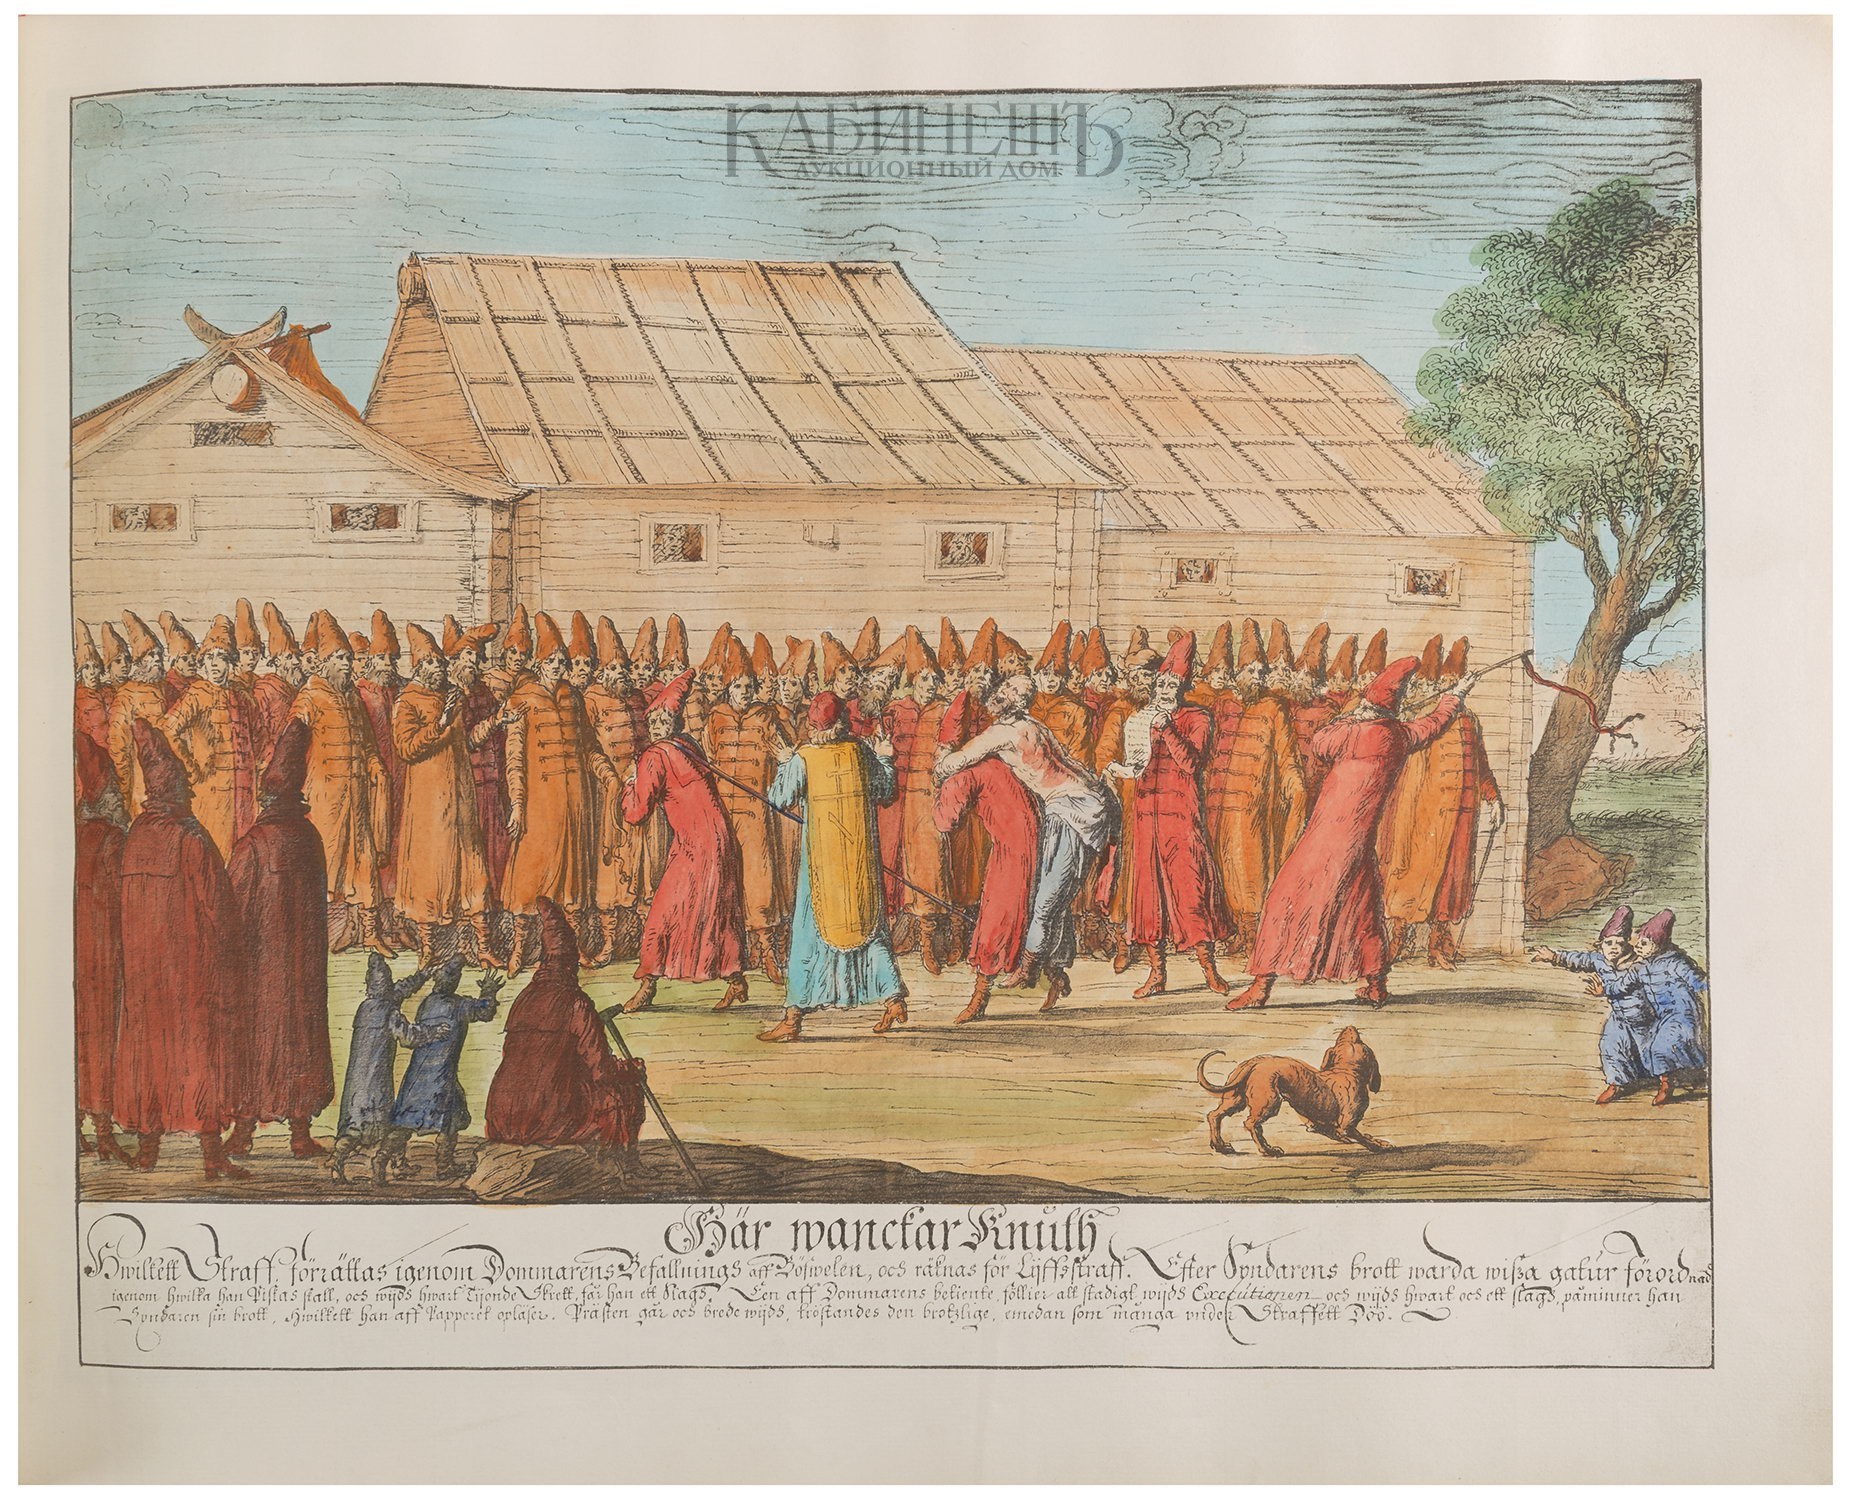 КАБИНЕТЪ
АУКЦИОННЫЙ ДОМ
Här wanckar Knuth
Hwilkett Straff, förrättas igenom Dommarens Befallnings aff Böswelen, och räknas för Lijffsstraff. Efter Syndarens brott warda wißa gatur förordnad
igenom hwilka han Piskas skall, och wijds hwart Tijonde Skrett, får han ett Slags. Een aff Dommarens betiente, föllier all stadigt wijds Executionen och wijds hwart och ett slags, påminner han
Syndaren sin brott, Hwilkett han aff Papperet opläser. Prästen går och brede wijds, tröstandes den brotzlige, emedan som många under Straffett Döö.